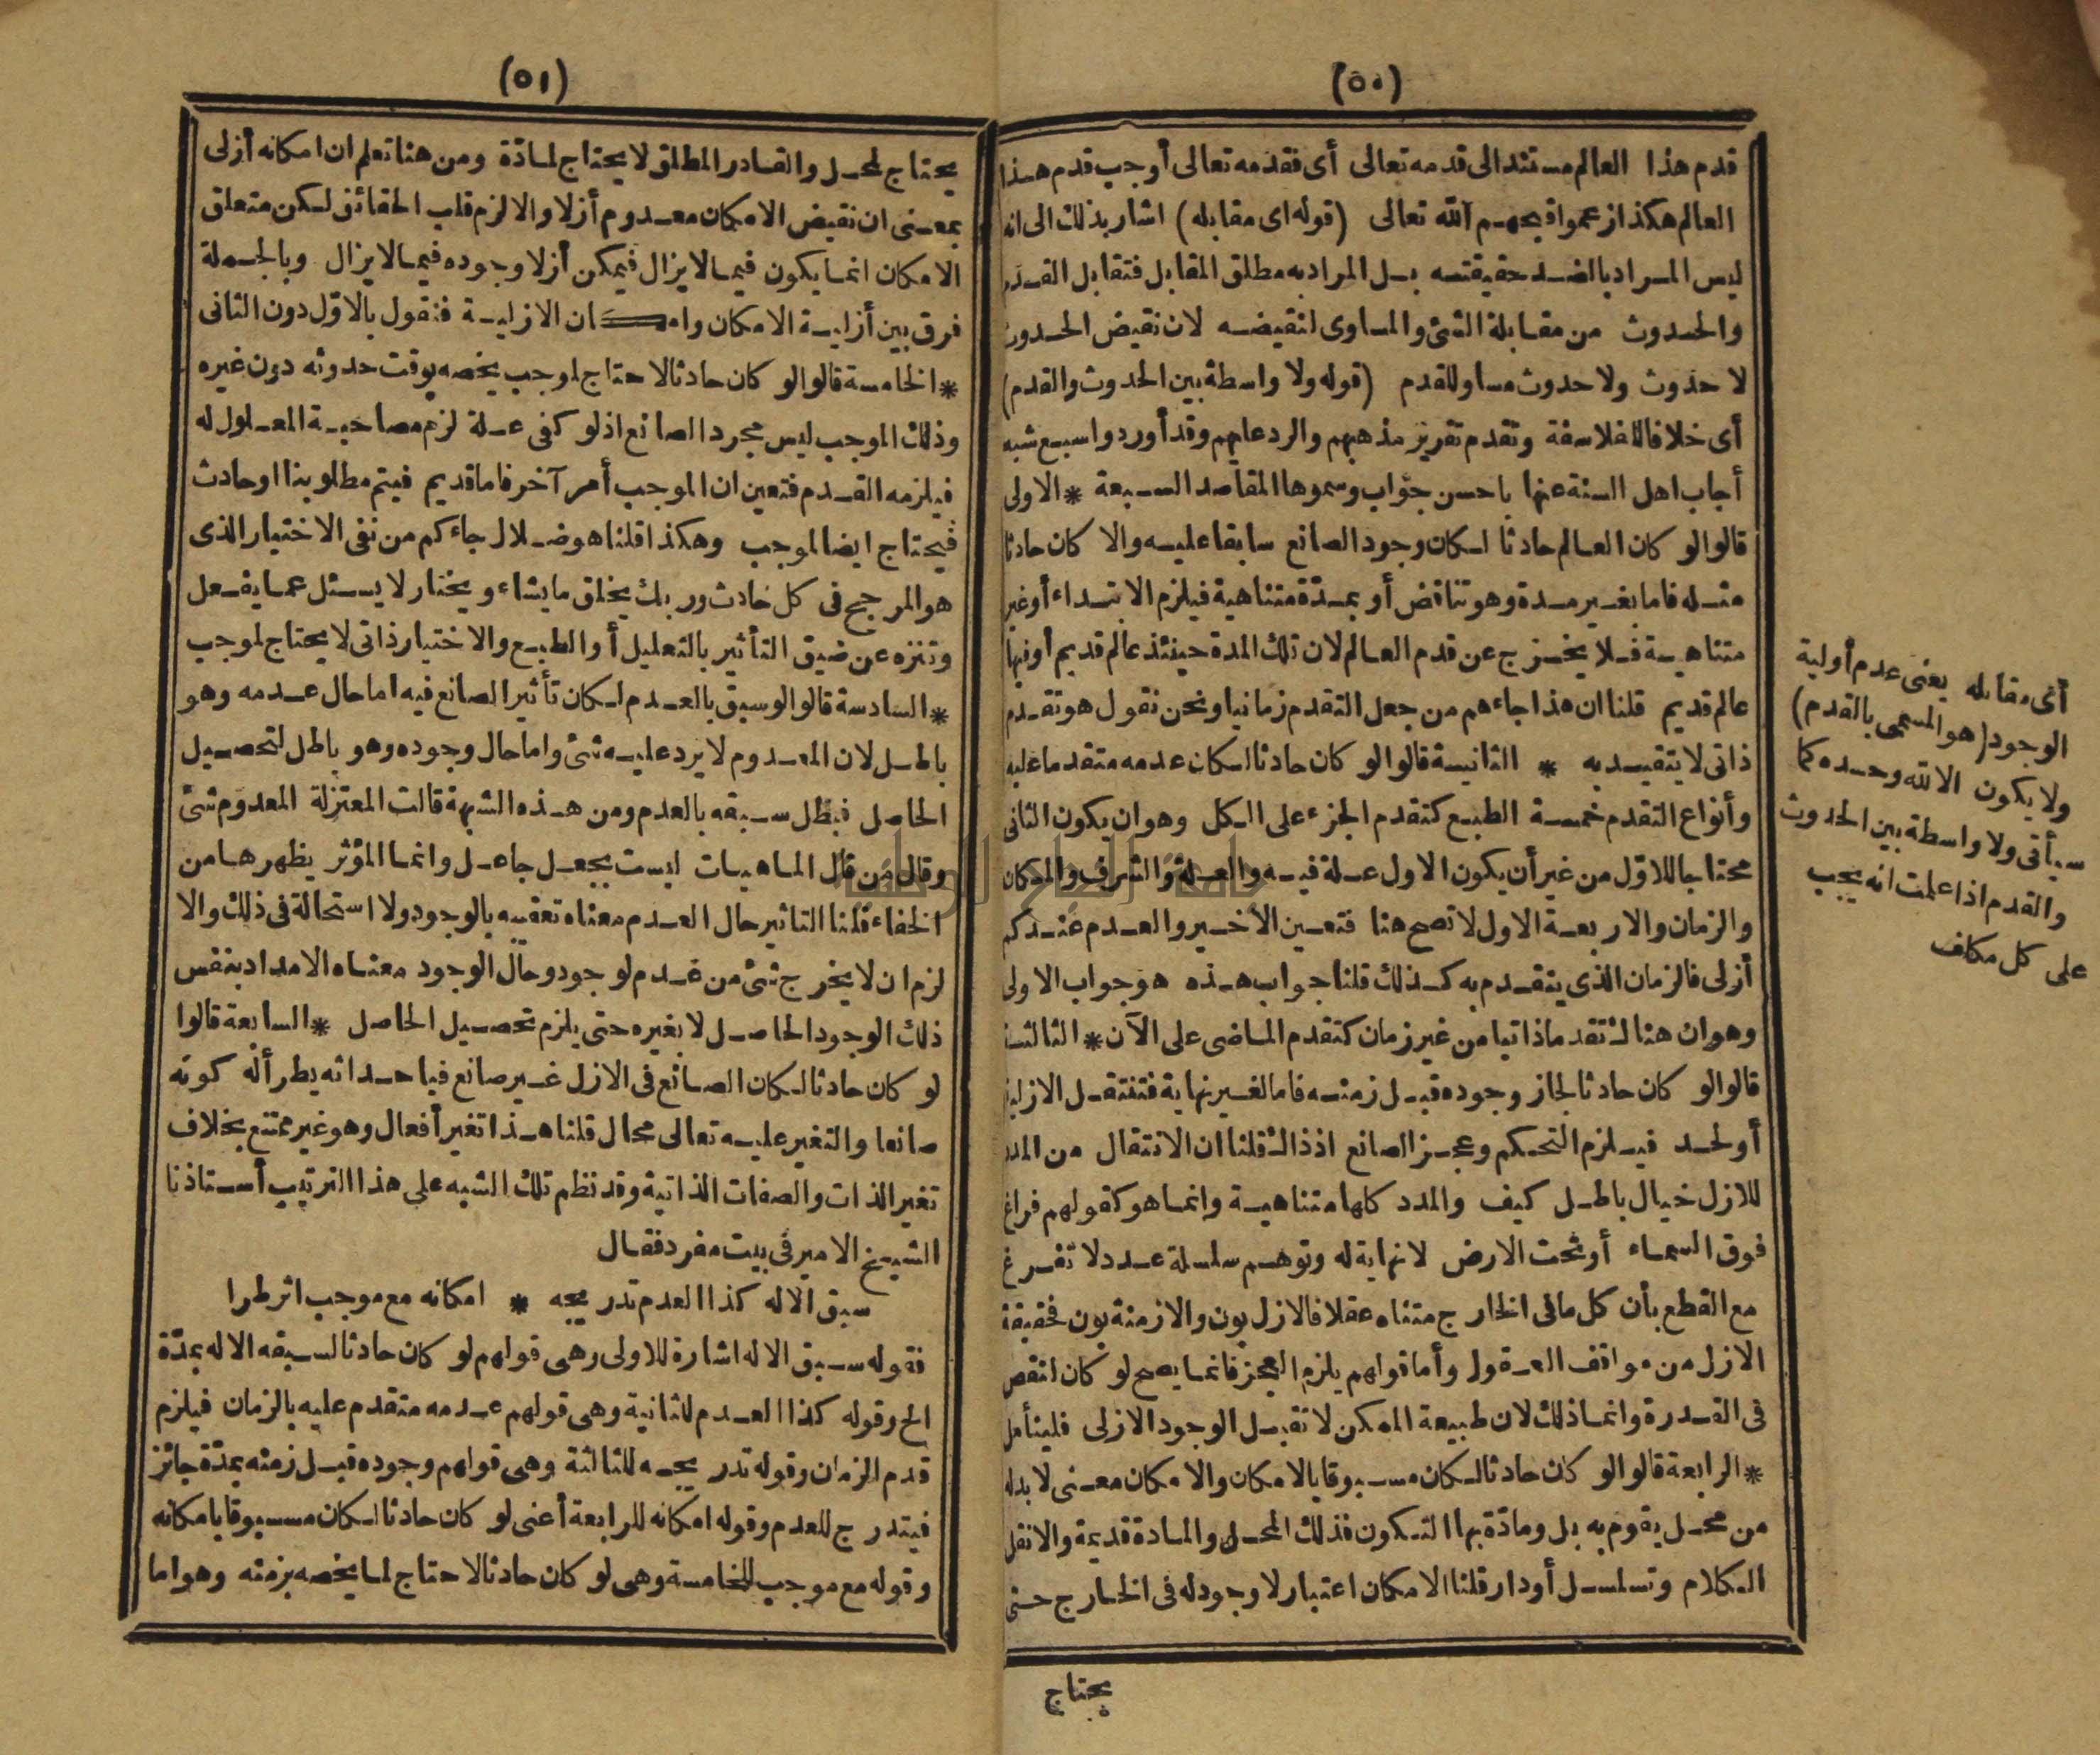 (٥٠)
قدم هذا العالم مستند الى قدمه تعالى أى فقدمه تعالى أوجب قدم هذا
العالم هكذا زعموا قبحهم الله تعالى (قوله اى مقابله) اشار بذلك الى انه
ليس المراد بالضد حقيقته بل المراد به مطلق المقابل فتقابل القدم
والحدوث من مقابلة الشئ والمساوى لنقيضه لان نقيض الحدوث
لا حدوث ولا حدوث مساو للقدم (قوله ولا واسطة بين الحدوث والقدم)
أى خلافا للفلاسفة وتقدم تقرير مذهبهم والرد عليهم وقد أوردوا سبع شبه
أجاب اهل السنة عنها باحسن جواب وسموها المقاصد السبعة * الاولى
قالوا لو كان العالم حادثا لكان وجود الصانع سابقا عليه والا كان حادثا
مثله فاما بغير مدة وهو تناقض أو بمدّة متناهية فيلزم الابتداء أو غير
متناهية فلا يخرج عن قدم العالم لان تلك المدة حينئذ عالم قديم أو فيها
عالم قديم قلنا ان هذا جاءهم من جعل التقدم زمانيا ونحن نقول هو تقدم
ذاتى لا يتقيد به * الثانية قالوا لو كان حادثا لكان عدمه متقدما عليه
وأنواع التقدم خمسة الطبع كتقدم الجزء على الكل وهو ان يكون الثانى
محتاجا للاوّل من غير أن يكون الاول علة فيه والعلة والشرف والمكان
والزمان والاربعة الاول لا تصح هنا فتعين الأخير والعدم عندكم
أزلى فالزمان الذى يتقدم به كذلك قلنا جواب هذه هو جواب الاولى
وهو ان هنالك تقدما ذاتيا من غير زمان كتقدم الماضى على الآن * الثالثة
قالوا لو كان حادثا لجاز وجوده قبل زمنه فاما لغير نهاية فتنتقل الازلية
أو لحد فيلزم التحكم وعجز الصانع اذ ذاك قلنا ان الانتقال من المدد
للازل خيال باطل كيف والمدد كلها متناهية وانما هو كقولهم فراغ
فوق السماء أو تحت الارض لا نهاية له وتوهم سلسلة عدد لا تفرغ
مع القطع بأن كل ما فى الخارج متناه عقلا فالازل بون والازمنة بون فحقيقة
الازل من مواقف العقول وأما قولهم يلزم العجز فانما يصح لو كان لنقص
فى القدرة وانما ذلك لان طبيعة الممكن لا تقبل الوجود الازلى فليتأمل
* الرابعة قالوا لو كان حادثا لكان مسبوقا بالامكان والامكان معنى لا بد له
من محل يقوم به بل ومادّة بها التكون فذلك المحل والمادة قديمة والا نقل
الكلام وتسلسل أو دار قلنا الامكان اعتبار لا وجود له فى الخارج حتى
يحتاج
أى مقابله يعنى عدم أولية
الوجود (هو المسمى بالقدم)
ولا يكون الا لله وحده كما
سيأتى ولا واسطة بين الحدوث
والقدم اذا علمت انه يجب
على كل مكلف
(٥١)
يحتاج لمحل والقادر المطلق لا يحتاج لمادّة ومن هنا تعلم ان امكانه أزلى
بمعنى ان نقيض الامكان معدوم أزلا والا لزم قلب الحقائق لكن متعلق
الامكان انما يكون فيما لا يزال فيمكن أزلا وجوده فيما لا يزال وبالجملة
فرق بين أزلية الامكان وامكان الازلية فنقول بالاوّل دون الثانى
* الخامسة قالوا لو كان حادثا لاحتاج لموجب يخصه بوقت حدوثه دون غيره
وذلك الموجب ليس مجرد الصانع اذ لو كفى علة لزم مصاحبة المعلول له
فيلزمه القدم فتعين ان الموجب أمر آخر فاما قديم فيتم مطلوبنا او حادث
فيحتاج ايضا لموجب وهكذا قلنا هو ضلال جاءكم من نفى الاختيار الذى
هو المرجح فى كل حادث وربك يخلق ما يشاء ويختار لا يسئل عما يفعل
وتنزه عن ضيق التأثير بالتعليل أو الطبع والاختيار ذاتى لا يحتاج لموجب
* السادسة قالوا لو سبق بالعدم لكان تأثير الصانع فيه اما حال عدمه وهو
باطل لان المعدوم لا يرد عليه شئ واما حال وجوده وهو باطل لتحصيل
الحاصل فبطل سبقه بالعدم ومن هذه الشبهة قالت المعتزلة المعدوم شئ
وقال من قال الماهيات ليست بجعل جاعل وانما المؤثر يظهرها من
الخفاء قلنا التاثير حال العدم معناه تعقيبه بالوجود ولا استحالة فى ذلك والا
لزم ان لا يخرج شئ من عدم لوجود وحال الوجود معناه الامداد بنفس
ذلك الوجود الحاصل لا بغيره حتى يلزم تحصيل الحاصل * السابعة قالوا
لو كان حادثا لكان الصانع فى الازل غير صانع فباحداثه يطرأ له كونه
صانعا والتغير عليه تعالى محال قلنا هذا تغير أفعال وهو غير ممتنع بخلاف
تغير الذات والصفات الذاتية وقد نظم تلك الشبه على هذا الترتيب أستاذنا
الشيخ الامير فى بيت مفرد فقال
سبق الاله كذا العدم تدريجه * امكانه مع موجب اثر طرا
فقوله سبق الاله اشارة للاولى وهى قولهم لو كان حادثا لسبقه الاله بمدّة
الخ وقوله كذا العدم للثانية وهى قولهم عدمه متقدم عليه بالزمان فيلزم
قدم الزمان وقوله تدريجه للثالثة وهى قولهم وجوده قبل زمنه بمدّة جائز
فيتدرج للعدم وقوله امكانه للرابعة أعنى لو كان حادثا لكان مسبوقا بامكانه
وقوله مع موجب للخامسة وهى لو كان حادثا لاحتاج لما يخصه بزمنه وهو اما